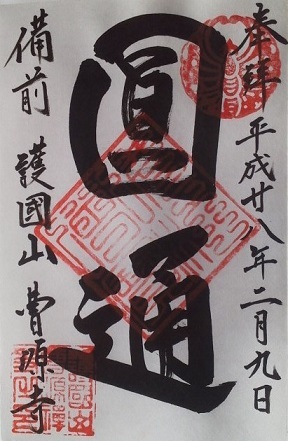 奉拜 平成廿八年二月九日
圓通
備前 護國山 曹源寺